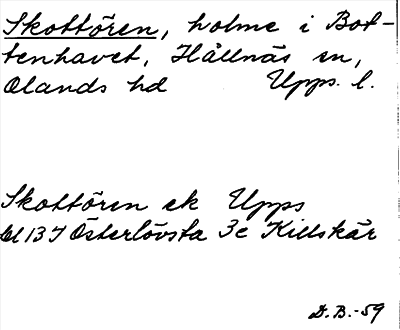 Skottören, holme i Bot-
tenhavet, Hållnäs sn,
Olands hd Upps. l.
Skottören ek Upps
bl 13 I Österlövsta 3c Killskär
D.B.-59